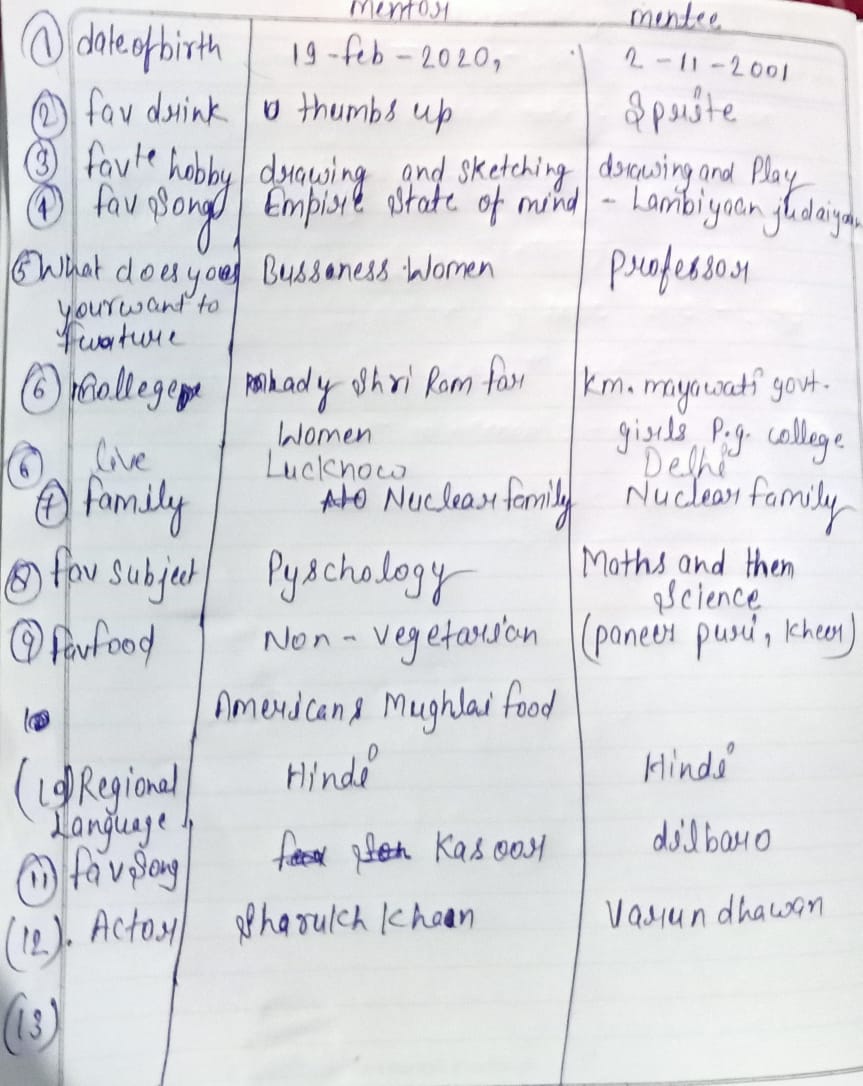 mentor mentee
① date of birth 19-feb-2020, 2-11-2001
② fav drink thumbs up Sprite
③ favte hobby drawing and Sketching drawing and Play
④ fav Song Empire State of mind - Lambiyaan judaiyaan
⑤ What does your Bussaness Women professor
your want to
fwature
⑥ College Lady Shri Ram for km. mayawati govt.
Women girls P.g. college
⑥ live Lucknow Delhi
⑦ family Nuclear family Nuclear family
⑧ fav subject Pyschology Maths and then
Science
⑨ favfood Non-vegetarian (paneer puri, kheer)
10
Americans Mughlai food
(10) Regional Hindi Hindi
Language
⑪ fav Song Kasoor dilbaro
(12). Actor Sharukh khaan Varun dhawan
(13)